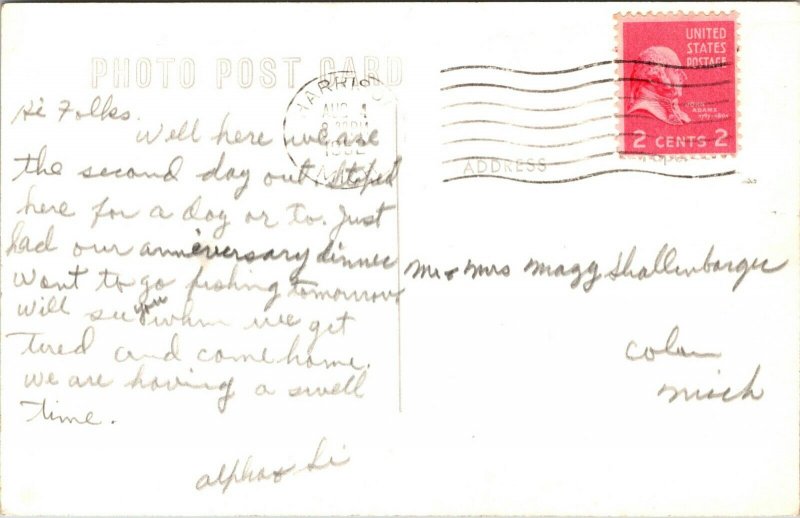 PHOTO POST CARD
UNITED
STATES
POSTAGE
JOHN
ADAMS
2 CENTS 2
AUG 4
ADDRESS
Hi Folks.
Well here we are
the second day out, stoped
here for a day or to. Just
had our anniversary dinner
Want to go fishing tomorrow
will see you whin we get
tired and come home.
we are having a swell
time.
alpha & Si
Mr & Mrs Magg Shallenbarger
Colon
Mich